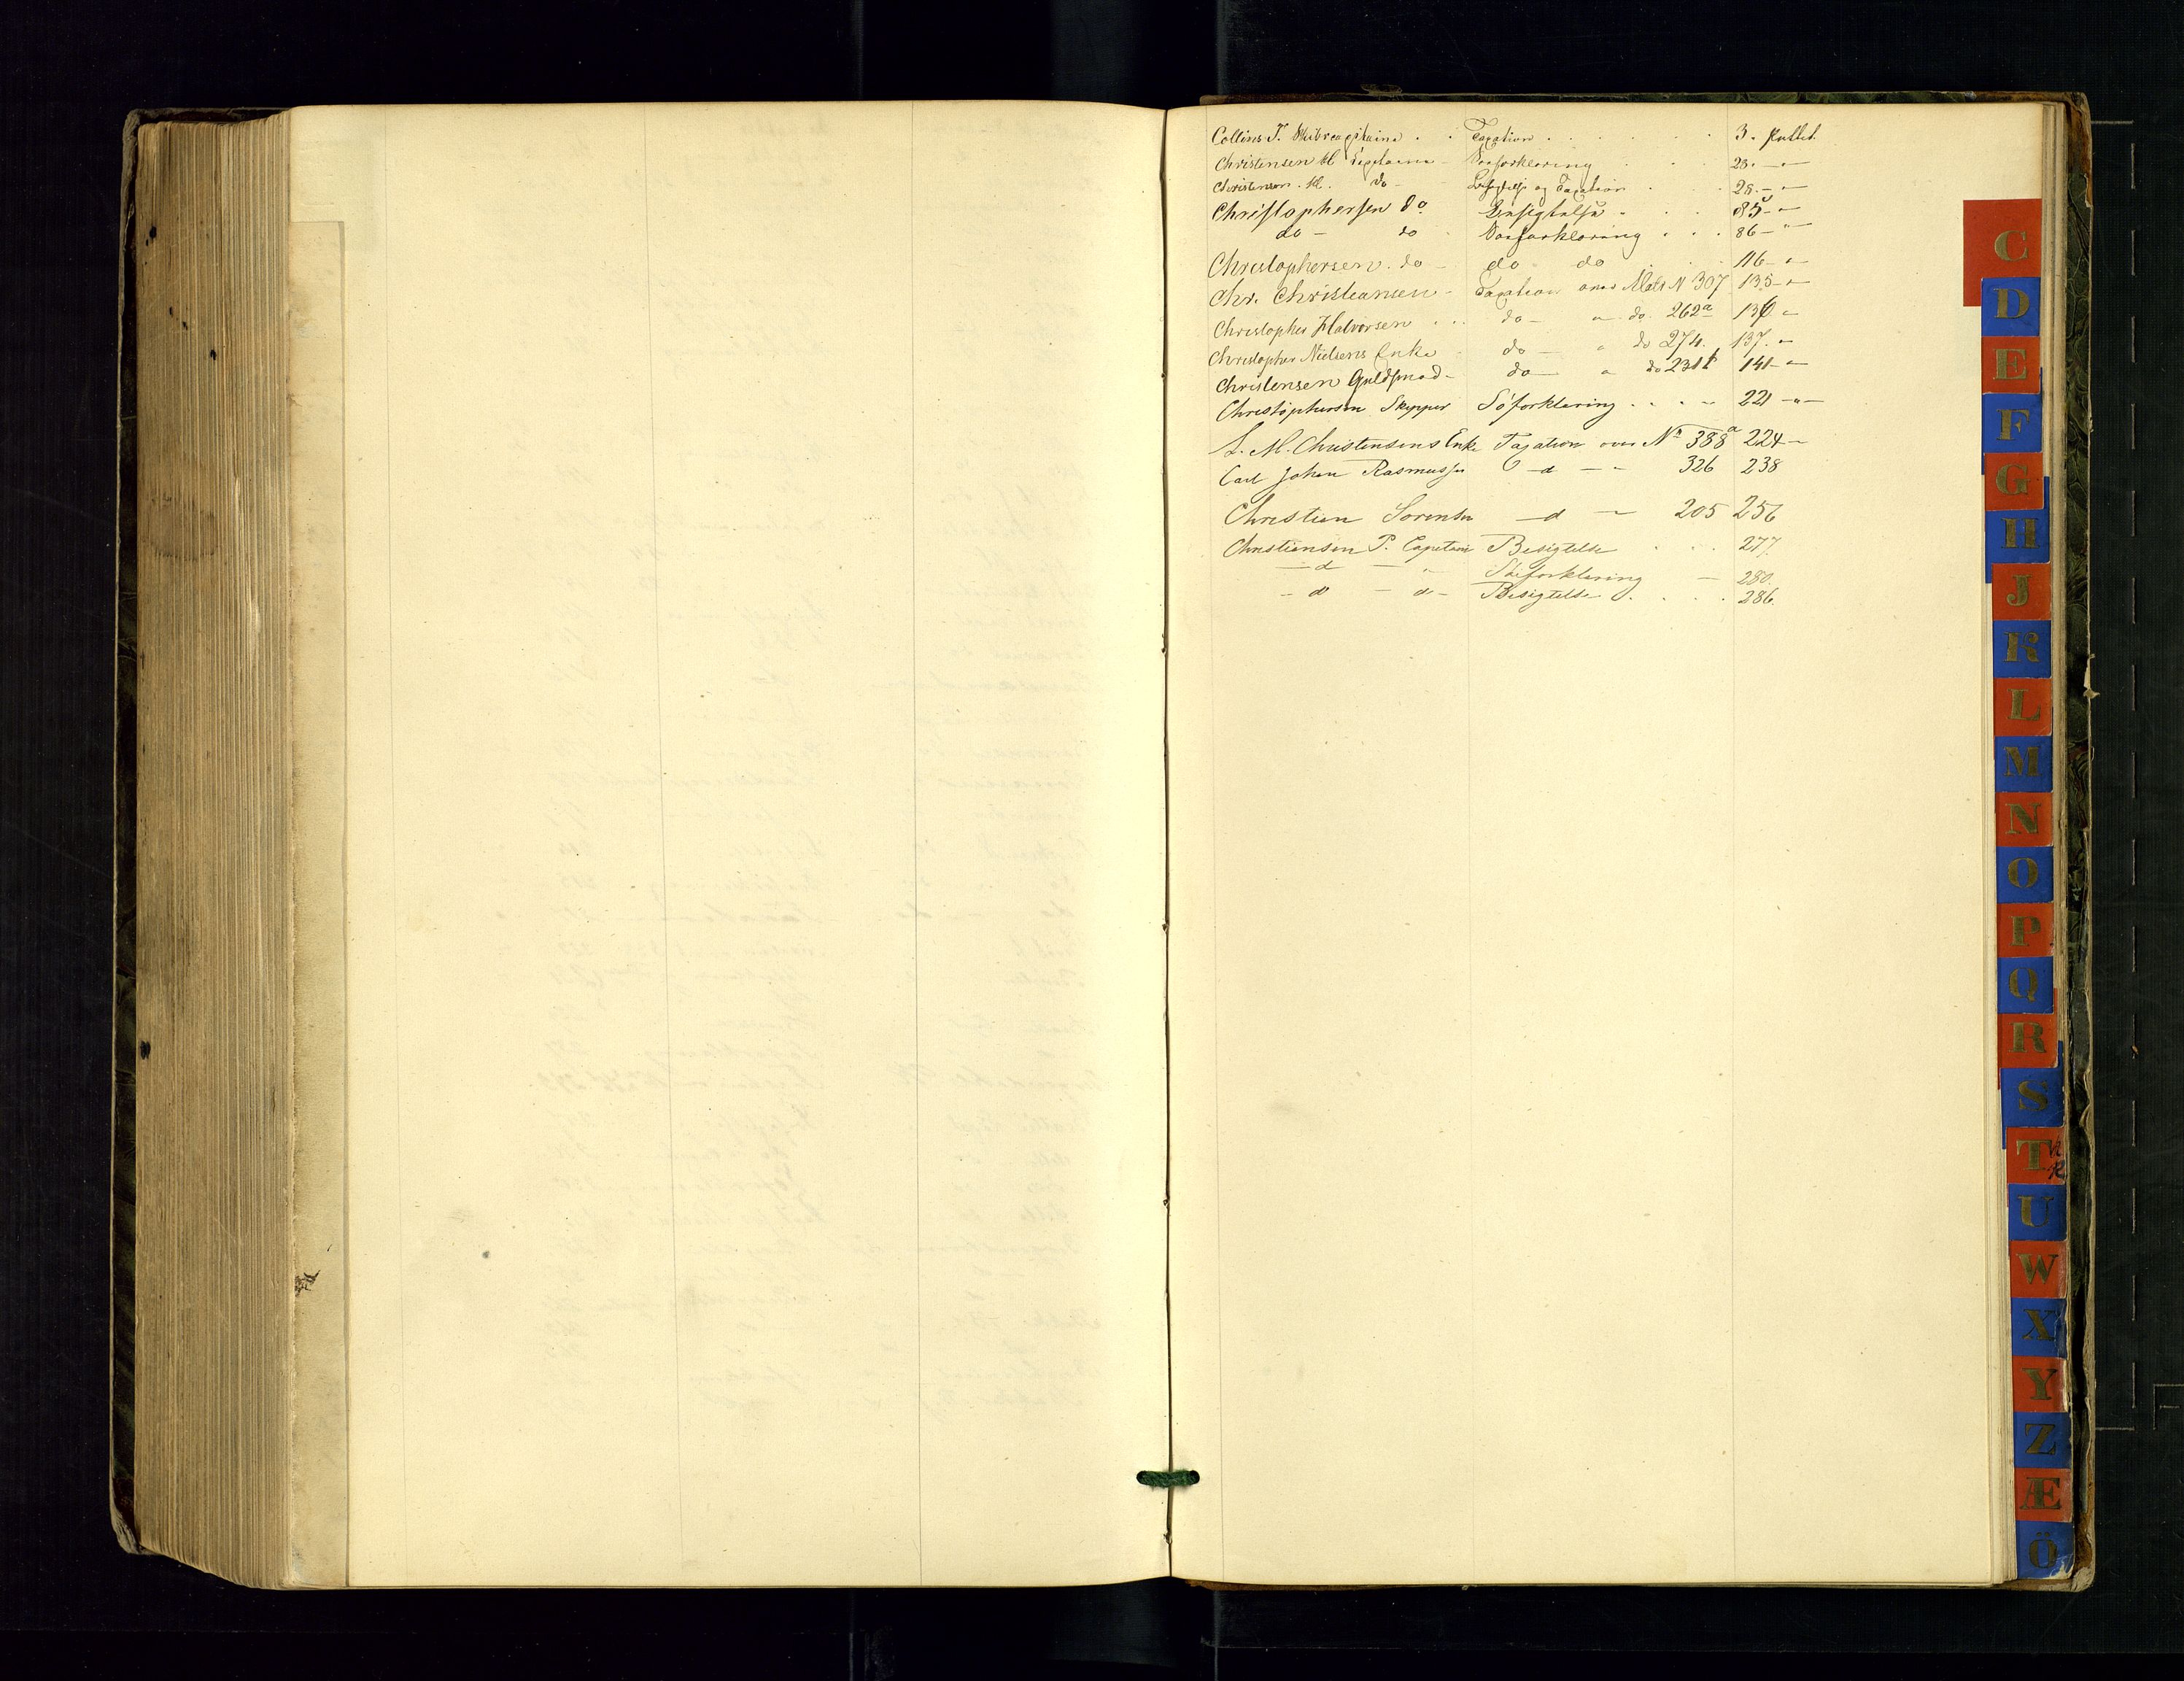 Collins T. Skibscapitaine . . Taxation . . . . . . 3. Pullet.
Christensen M Capitaine - Søeforklaring . . . 28. — "
Christensen. M. do - Besigtelse og Taxation . . 28. — "
Christophersen do Besigtelse . . . 85 — "
do — do . Søeforklaring . . . 86 — "
Christophersen. do - do do . . . 116 — "
Chr. Christiansen - Taxation over Matr N 307 135 — "
Christopher Halvorsen . . . do — " do. 262a 136 "
Christopher Nielsens Enke - do — " do 274. 137. — "
Christensen Guldsmed - do — " do 231b 141 — "
Christophersen Skipper Söforklaring . . . — 221 — " —
L. M. Christensens Enke Taxation over No 388a 224 —
Carl Johan Rasmussen d — " 326 238
Christian Sorensen — d — 205 256
Christiansen P. Capitain Besigtelse . . . 277.
— d — " Søeforklaring — 280.
— d — d — Besigtelse . . . . 286.
C
D
E
F
G
H
J
K
L
M
N
O
P
Q
R
S
T
U
W
X
Y
Z
Æ
Ö